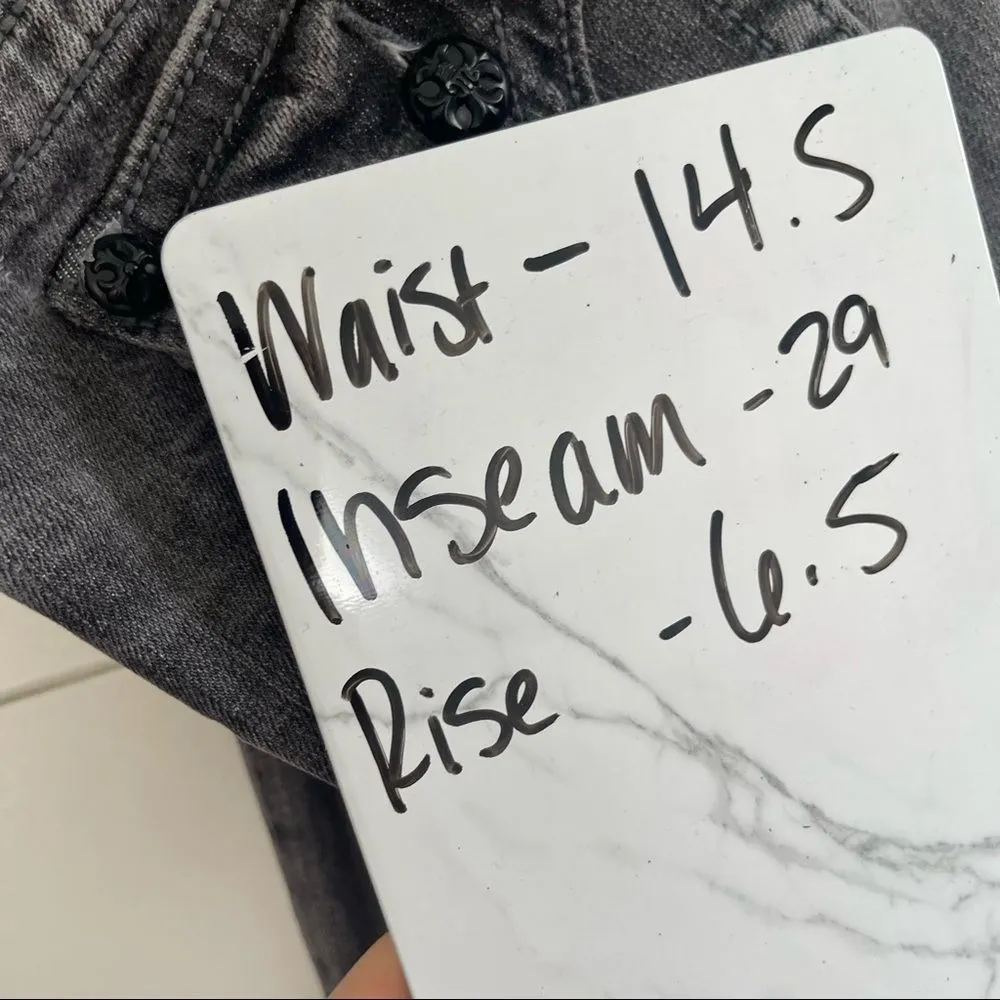 Waist - 14.5
Inseam - 29
Rise - 6.5